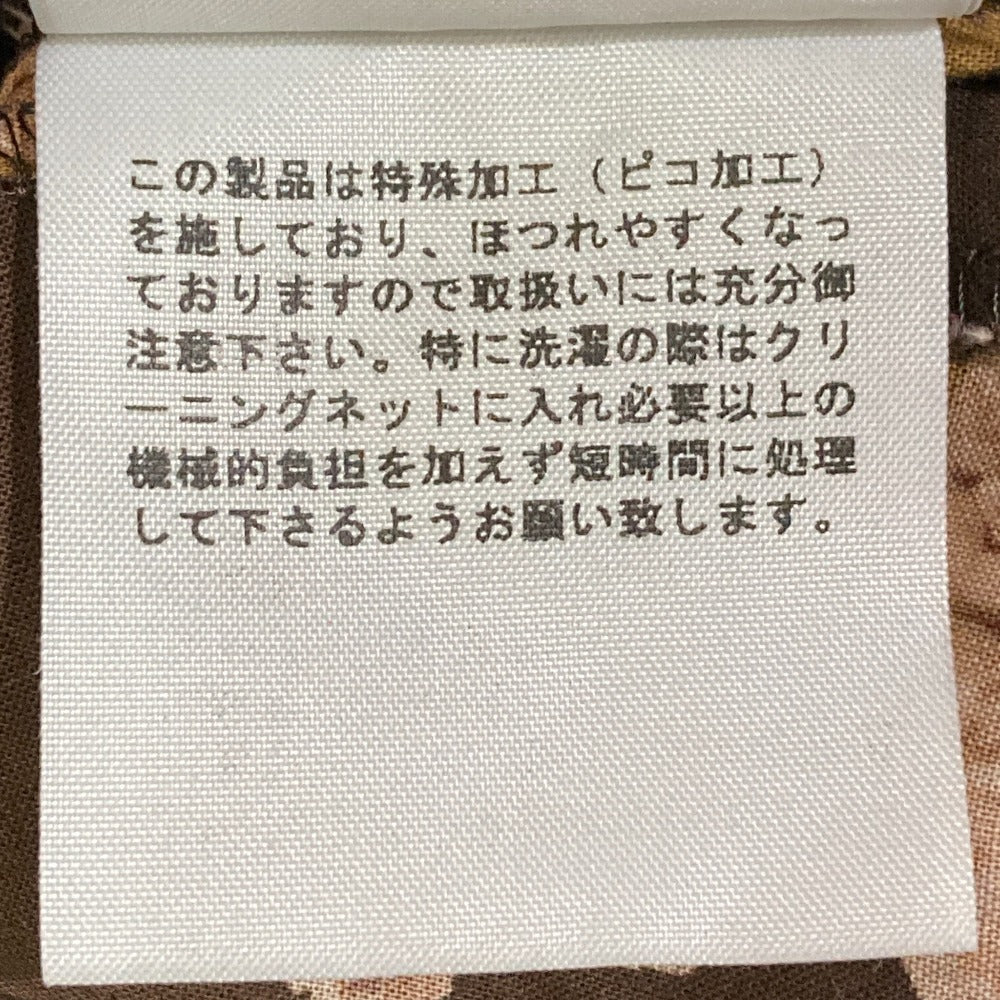 この製品は特殊加工（ピコ加工）
を施しており、ほつれやすくなっ
ておりますので取扱いには充分御
注意下さい。特に洗濯の際はクリ
ーニングネットに入れ必要以上の
機械的負担を加えず短時間に処理
して下さるようお願い致します。